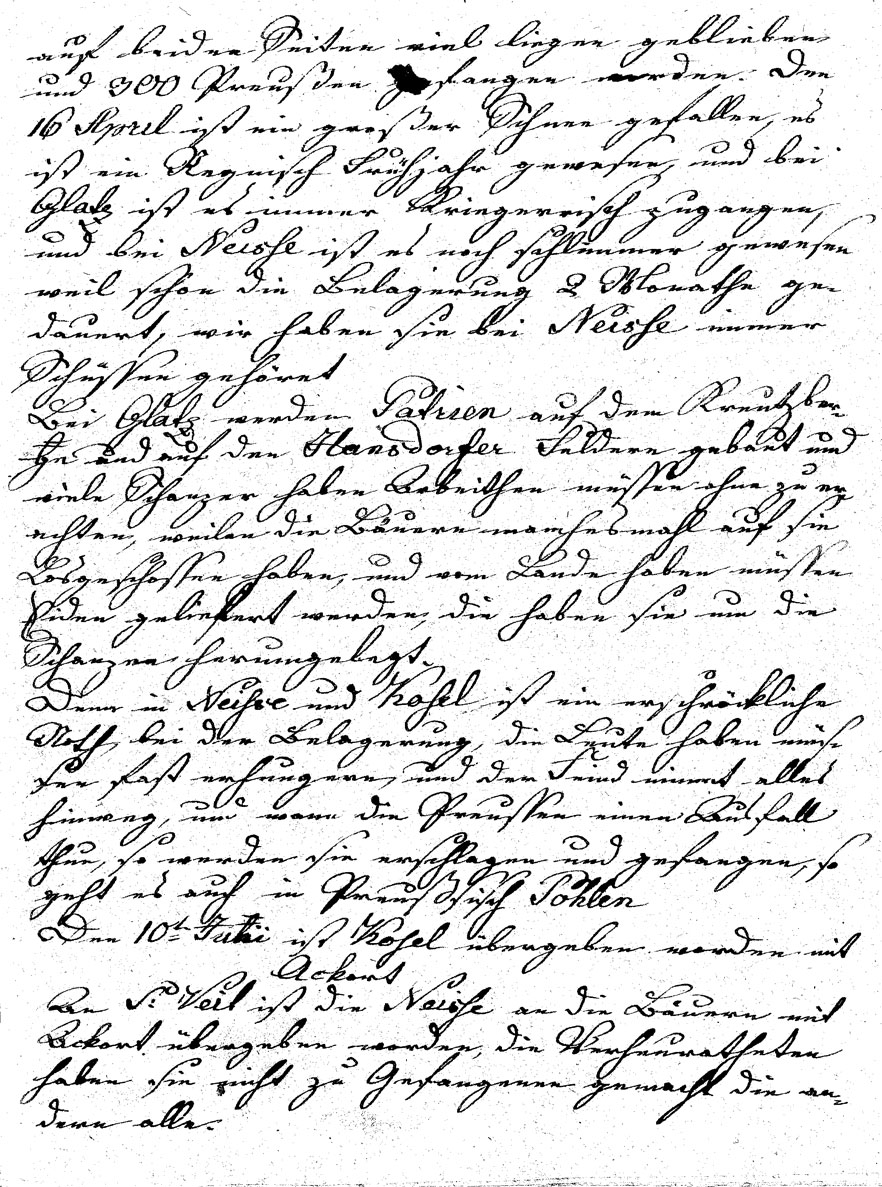 auf beiden Seiten viel liegen geblieben
und 300 Preußen gefangen worden. Den
16 April ist ein großer Schnee gefallen, es
ist ein Regnisch Frühjahr gewesen, und bei
Glatz ist es immer Kriegerrisch zugangen,
und bei Neisse ist es noch schlimmer gewesen
weil schon die Belagerung 2 Monathe ge-
dauert, wir haben sie bei Neisse immer
Schüssen gehöret
Bei Glatz werden Patrien auf dem Kreutzber-
ge und auf den Hansdorfer Feldern gebaut und
viele Schanzer haben Arbeithen müssen ohne zu er
achten, weilen die Bäuern manchesmahl auf sie
Losgeschossen haben, und vom Lande haben müssen
geliefert werden, die haben sie um die
Schanzen herumgelegt.
Denn in Neisse und Kosel ist ein erschröckliche
Noth, bei der Belagerung, die Leute haben müs-
sen fast erhungern, und der Feind nimmt alles
hinweg, und wann die Preussen einen Ausfall
thun, so werden sie erschlagen und gefangen, so
geht es auch in Preußsisch Pohlen
Den 10t Julii ist Kosel übergeben worden mit
Ackort
An St Veit ist die Neisse an die Bäuern mit
Ackort übergeben worden, die Verheuratheten
haben sie nicht zu Gefangenen gemacht die an-
dern alle.